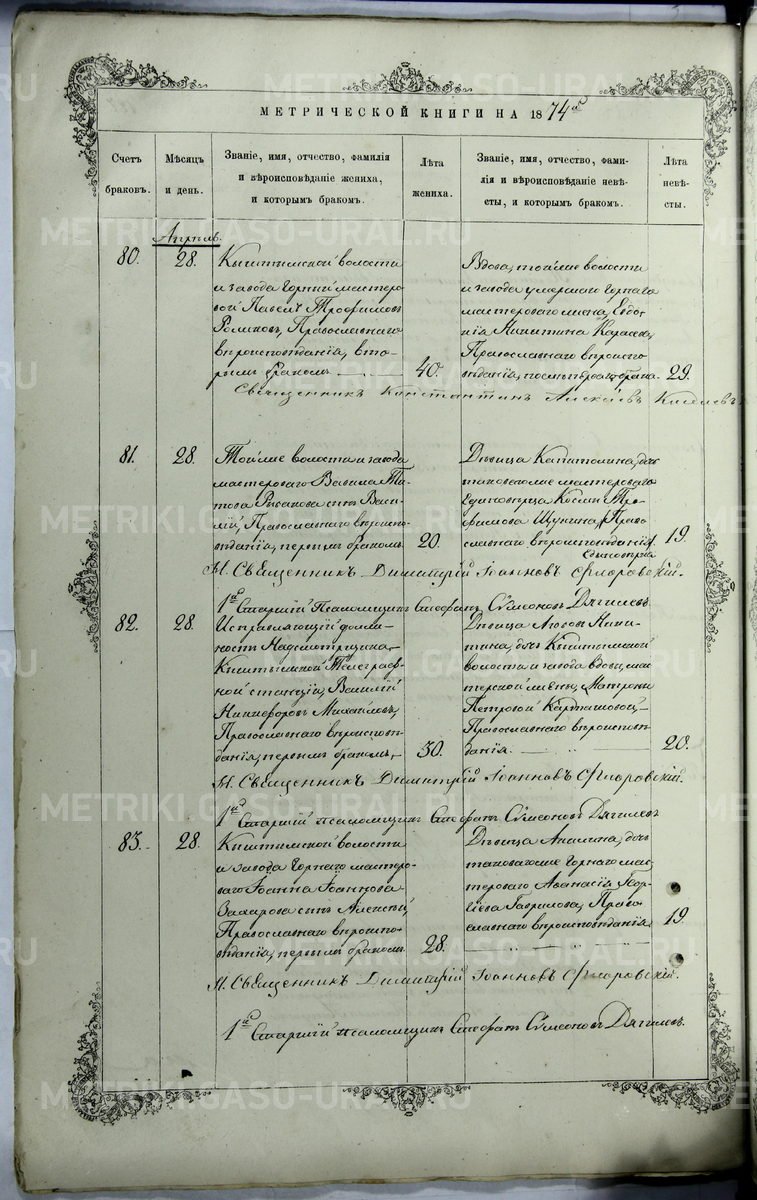 МЕТРИЧЕСКОЙ КНИГИ НА 1874й
Счетъ браковъ.
Мѣсяцъ и день.
Званіе, имя, отчество, фамилія и вѣроисповѣданіе жениха, и которымъ бракомъ.
Лѣта жениха.
Званіе, имя, отчество, фамилія и вѣроисповѣданіе невѣсты, и которымъ бракомъ.
Лѣта невѣсты.
Апрѣль.
80.
28.
Кыштымской волости
и завода Горный мастеро-
вой Павелъ Трофимовъ
Романовъ, Православнаго
вѣроисповѣданія, вто-
рымъ бракомъ
40.
Вдова, той же волости
и завода умершаго Горнаго
мастероваго жена, Евдо-
кія Никитина
Православнаго вѣроиспо-
вѣданія, послѣ перваго брака.
29.
Священникъ Константинъ Алексѣевъ
81.
28.
Той же волости и завода
мастероваго Вавила Ти-
това Рысакова сынъ Васи-
лій, Православнаго вѣроиспо-
вѣданія, первымъ бракомъ.
20.
Дѣвица Капитолина, дочь
таковаго же мастероваго
Единовѣрца Космы Тро-
фимова Щукина, Право-
славнаго вѣроисповѣданія
19.
М. Священникъ Димитрій Іоанновъ Флоровскій.
1й Старшій Псаломщикъ Стефанъ Сѵмеоновъ Дягилевъ
82.
28.
Исправляющій долж-
ность Надсмотрщика
Кыштымской Телеграф-
ной станціи, Василій
Никифоровъ Михайловъ,
Православнаго вѣроисповѣ-
данія, первымъ бракомъ,
30.
Дѣвица Любовь Ники-
тина, дочь Кыштымской
волости и завода вдовы, мас-
терской жены, Матроны
Петровой Карташовой,
Православнаго вѣроисповѣ-
данія.
20.
М. Священникъ Димитрій Іоанновъ Флоровскій.
1й Старшій псаломщикъ Стефанъ Сѵмеоновъ Дягилевъ
83.
28.
Кыштымской волости
и завода Горнаго мастеро-
ваго Іоанна Іоаннова
Захарова сынъ Алексѣй,
Православнаго вѣроиспо-
вѣданія, первымъ бракомъ
28.
Дѣвица Акилина, дочь
таковаго же Горнаго мас-
тероваго Аѳанасія Геор-
гіева Гаврилова, Право-
славнаго вѣроисповѣданія
19.
М. Священникъ Димитрій Іоанновъ Флоровскій.
1й Старшій псаломщикъ Стефанъ Сѵмеоновъ Дягилевъ.
METRIKI.GASO-URAL.RU